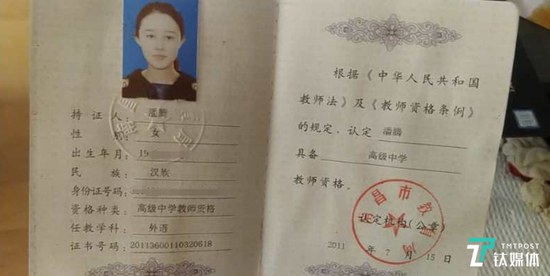 持证人 潘腾
性别 女
出生年月 19
民族 汉族
身份证号码
资格种类 高级中学教师资格
任教学科 外语
证书号码 20113600110320618
根据《中华人民共和国
教师法》及《教师资格条例》
的规定,认定 潘腾
具备 高级中学
教师资格。
认定机构(公章)
2011年7月15日
昌市教
TMTPOST
钛媒体